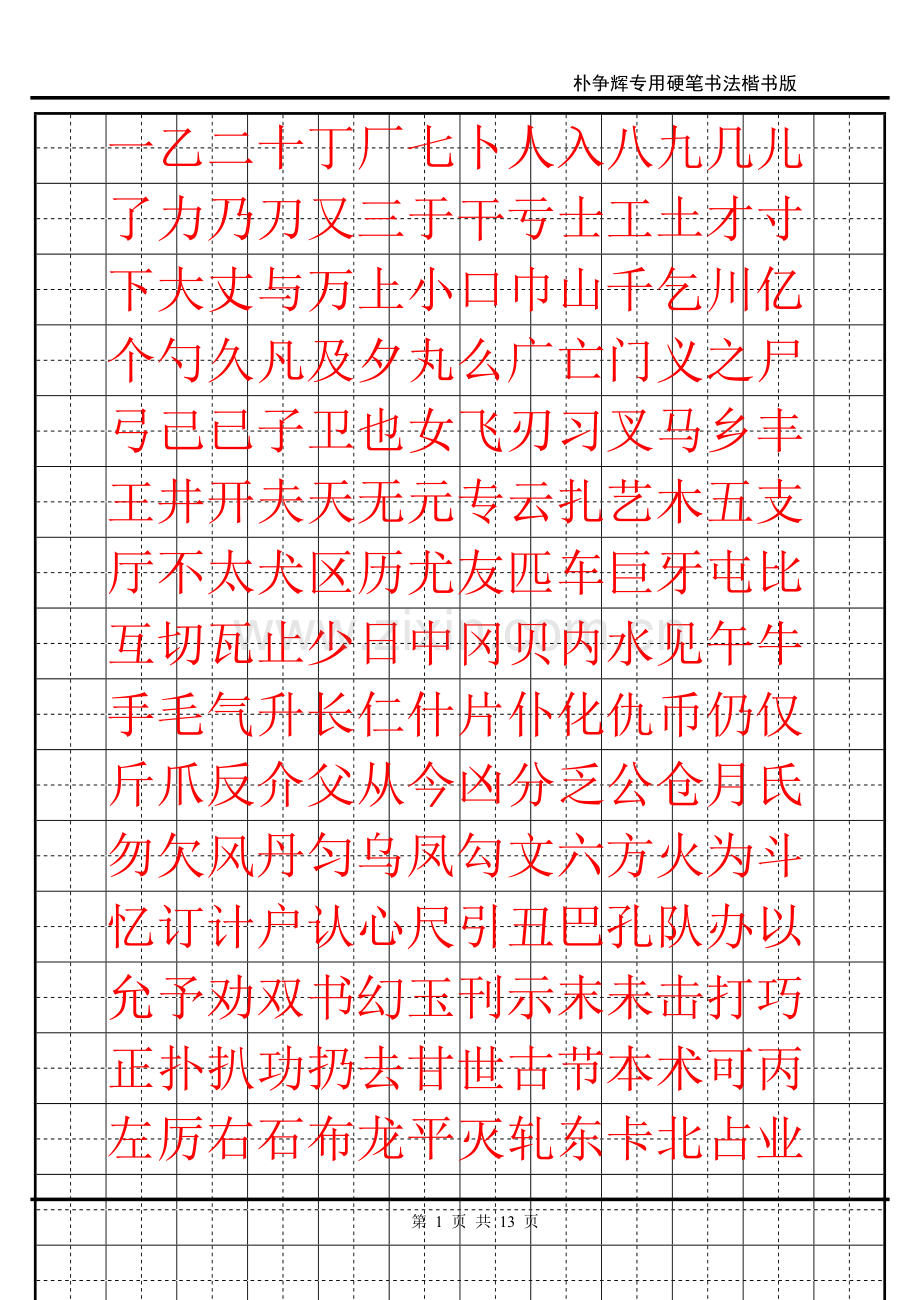 朴争辉专用硬笔书法楷书版
一乙二十丁厂七卜人入八九几儿
了力乃刀又三于干亏士工土才寸
下大丈与万上小口巾山千乞川亿
个勺久凡及夕丸么广亡门义之尸
弓己已子卫也女飞刃习叉马乡丰
王井开夫天无元专云扎艺木五支
厅不太犬区历尤友匹车巨牙屯比
互切瓦止少日中冈贝内水见午牛
www.zixin.com.cn
手毛气升长仁什片仆化仇币仍仅
斤爪反介父从今凶分乏公仓月氏
勿欠风丹匀乌凤勾文六方火为斗
忆订计户认心尺引丑巴孔队办以
允予劝双书幻玉刊示末未击打巧
正扑扒功扔去甘世古节本术可丙
左厉右石布龙平灭轧东卡北占业
第 1 页 共 13 页